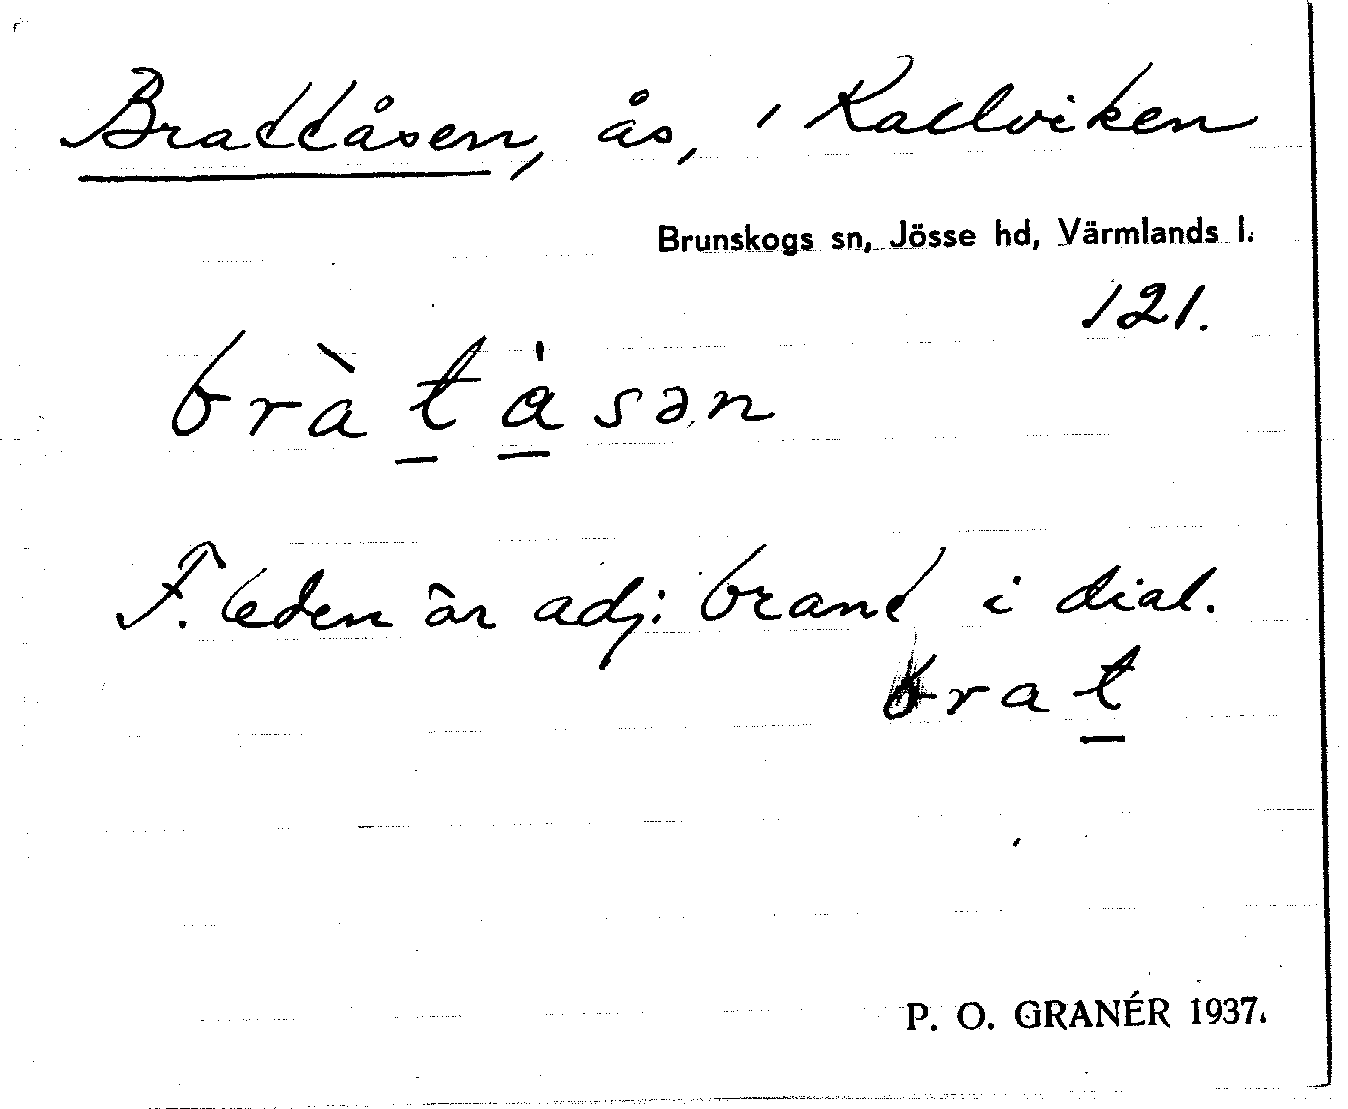 Brattåsen, ås, i Kallviken
Brunskogs sn, Jösse hd, Värmlands l.
121.
bràtåsən
F. leden är adj. brant i dial.
brat
P. O. GRANÉR 1937.